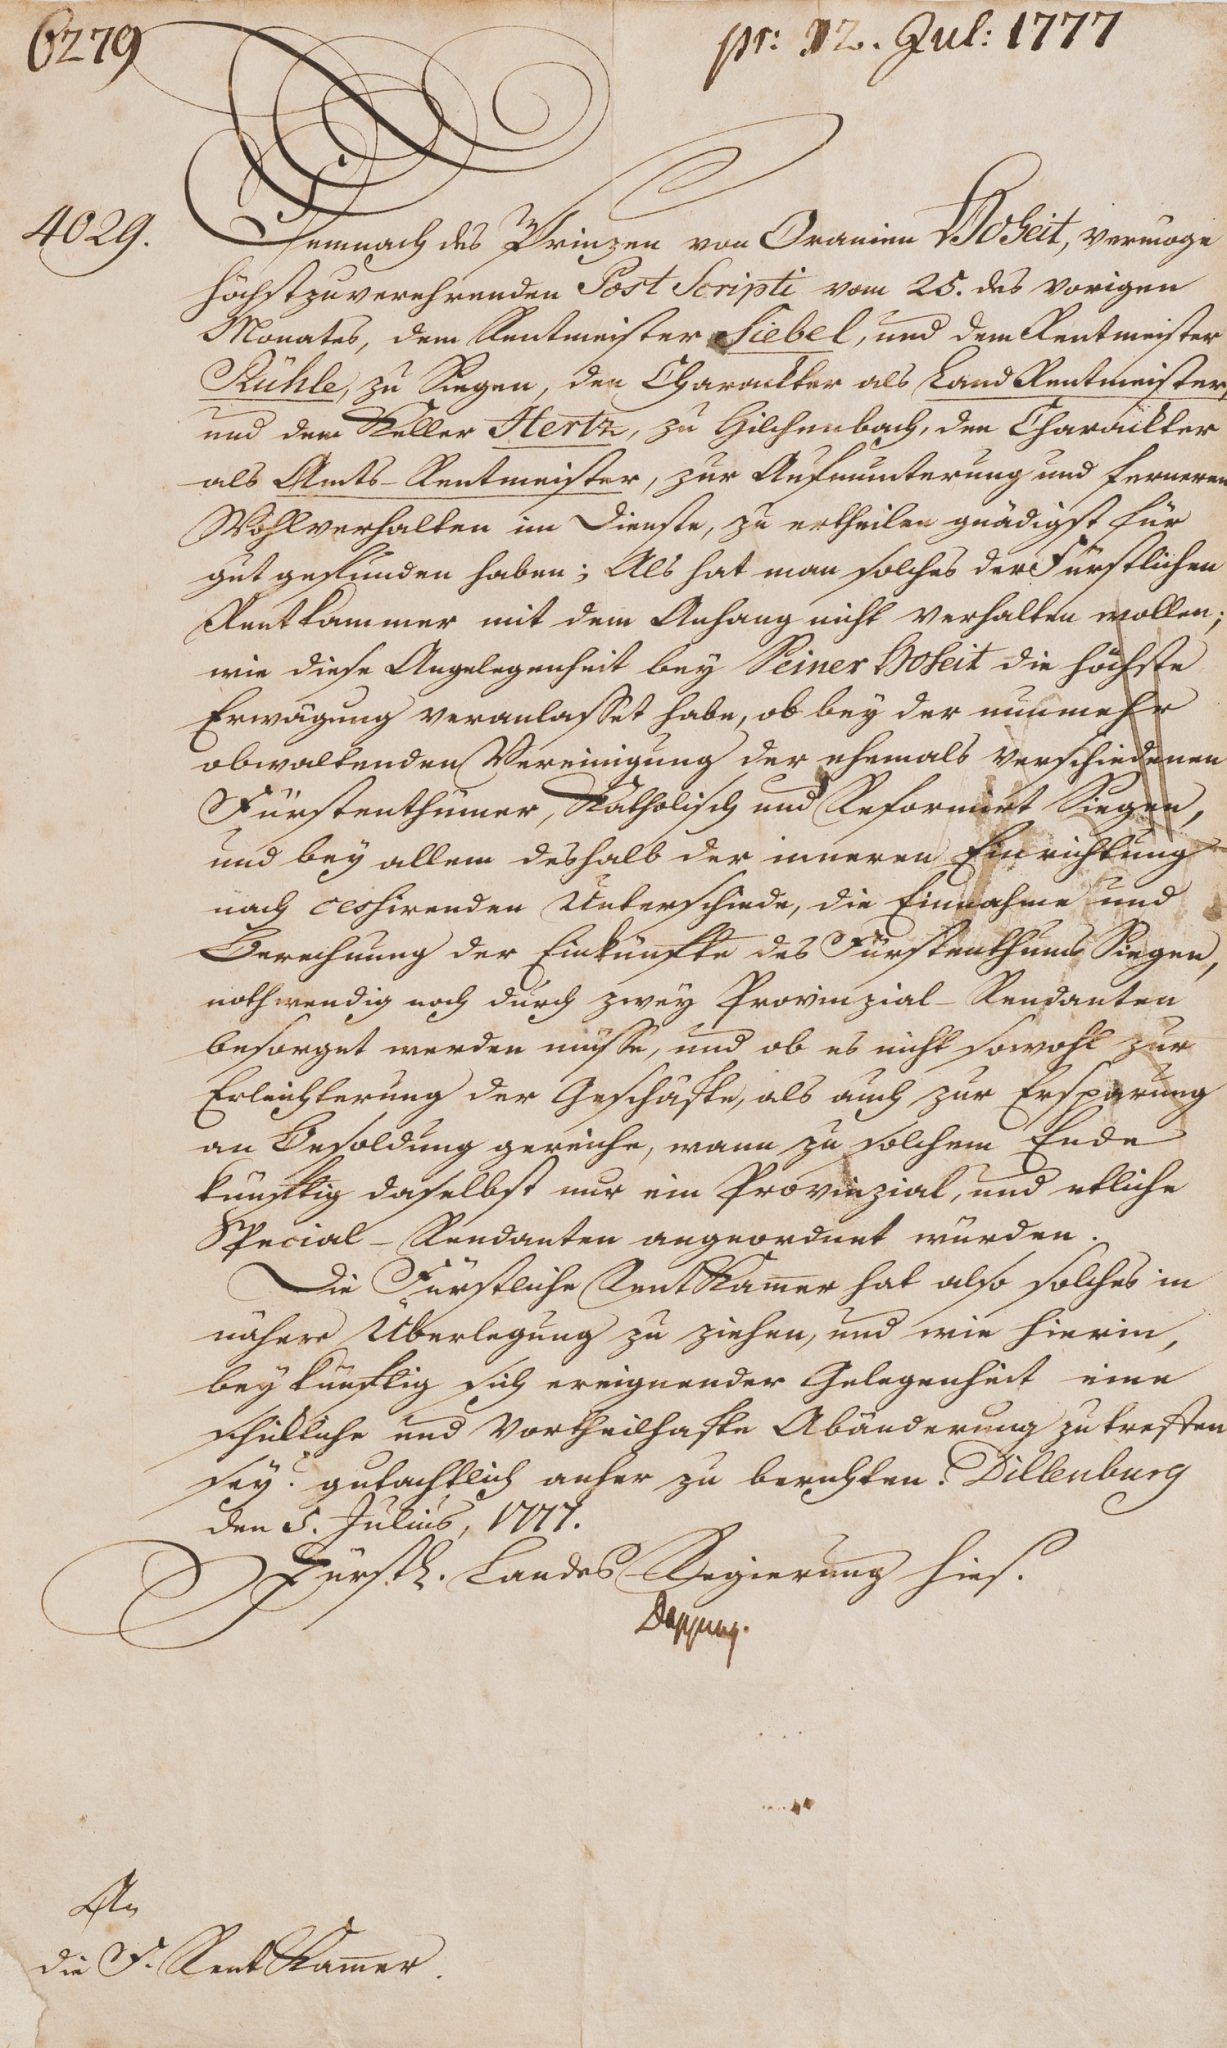 6279
pr: 12. Jul: 1777
4029.
Demnach des Prinzen von Oranien Hoheit, vermoge
höchstzuverehrenden Post Scripti vom 25. des vorigen
Monates, dem Rentmeister Siebel, und dem Rentmeister
Rühle, zu Siegen, den Charackter als Land Rentmeister,
und dem Keller Hertz, zu Hilchenbach, den Charackter
als Amts-Rentmeister, zur Aufmunterung und ferneren
Wohlverhalten im Dienste, zu ertheilen gnädigst für
gut gefunden haben; Als hat man solches der Fürstlichen
Rentkammer mit dem Anhang nicht verhalten wollen;
wie diese Angelegenheit bey Seiner Hoheit die höchste
Erwägung veranlasset habe, ob bey der nunmehr
obwaltenden Vereinigung der ehemals verschiedenen
Fürstenthümer, Katholisch und Reformirt Siegen,
und bey allem deshalb der inneren Einrichtung
nach cessirenden Unterschiede, die Einnahme und
Berechnung der Einkünfte des Fürstenthums Siegen,
nothwendig noch durch zwey Provinzial-Rendanten
besorget werden müsse, und ob es nicht sowohl zur
Erleichterung der Geschäfte, als auch zur Ersparung
an Besoldung gereiche, wann zu solchem Ende
künftig daselbst nur ein Provinzial, und etliche
Special-Rendanten angeordnet würden.
Die Fürstliche RentKamer hat also solches in
nähere Überlegung zu ziehen, und wie hierin,
bey künftig sich ereignender Gelegenheit eine
schickliche und vortheilhafte Abänderung zu treffen
sey? gutachtlich anher zu berichten. Dillenburg
den 5. Julius, 1777.
Fürstl. Landes Regierung hies.
An
die F. Rent Kamer.